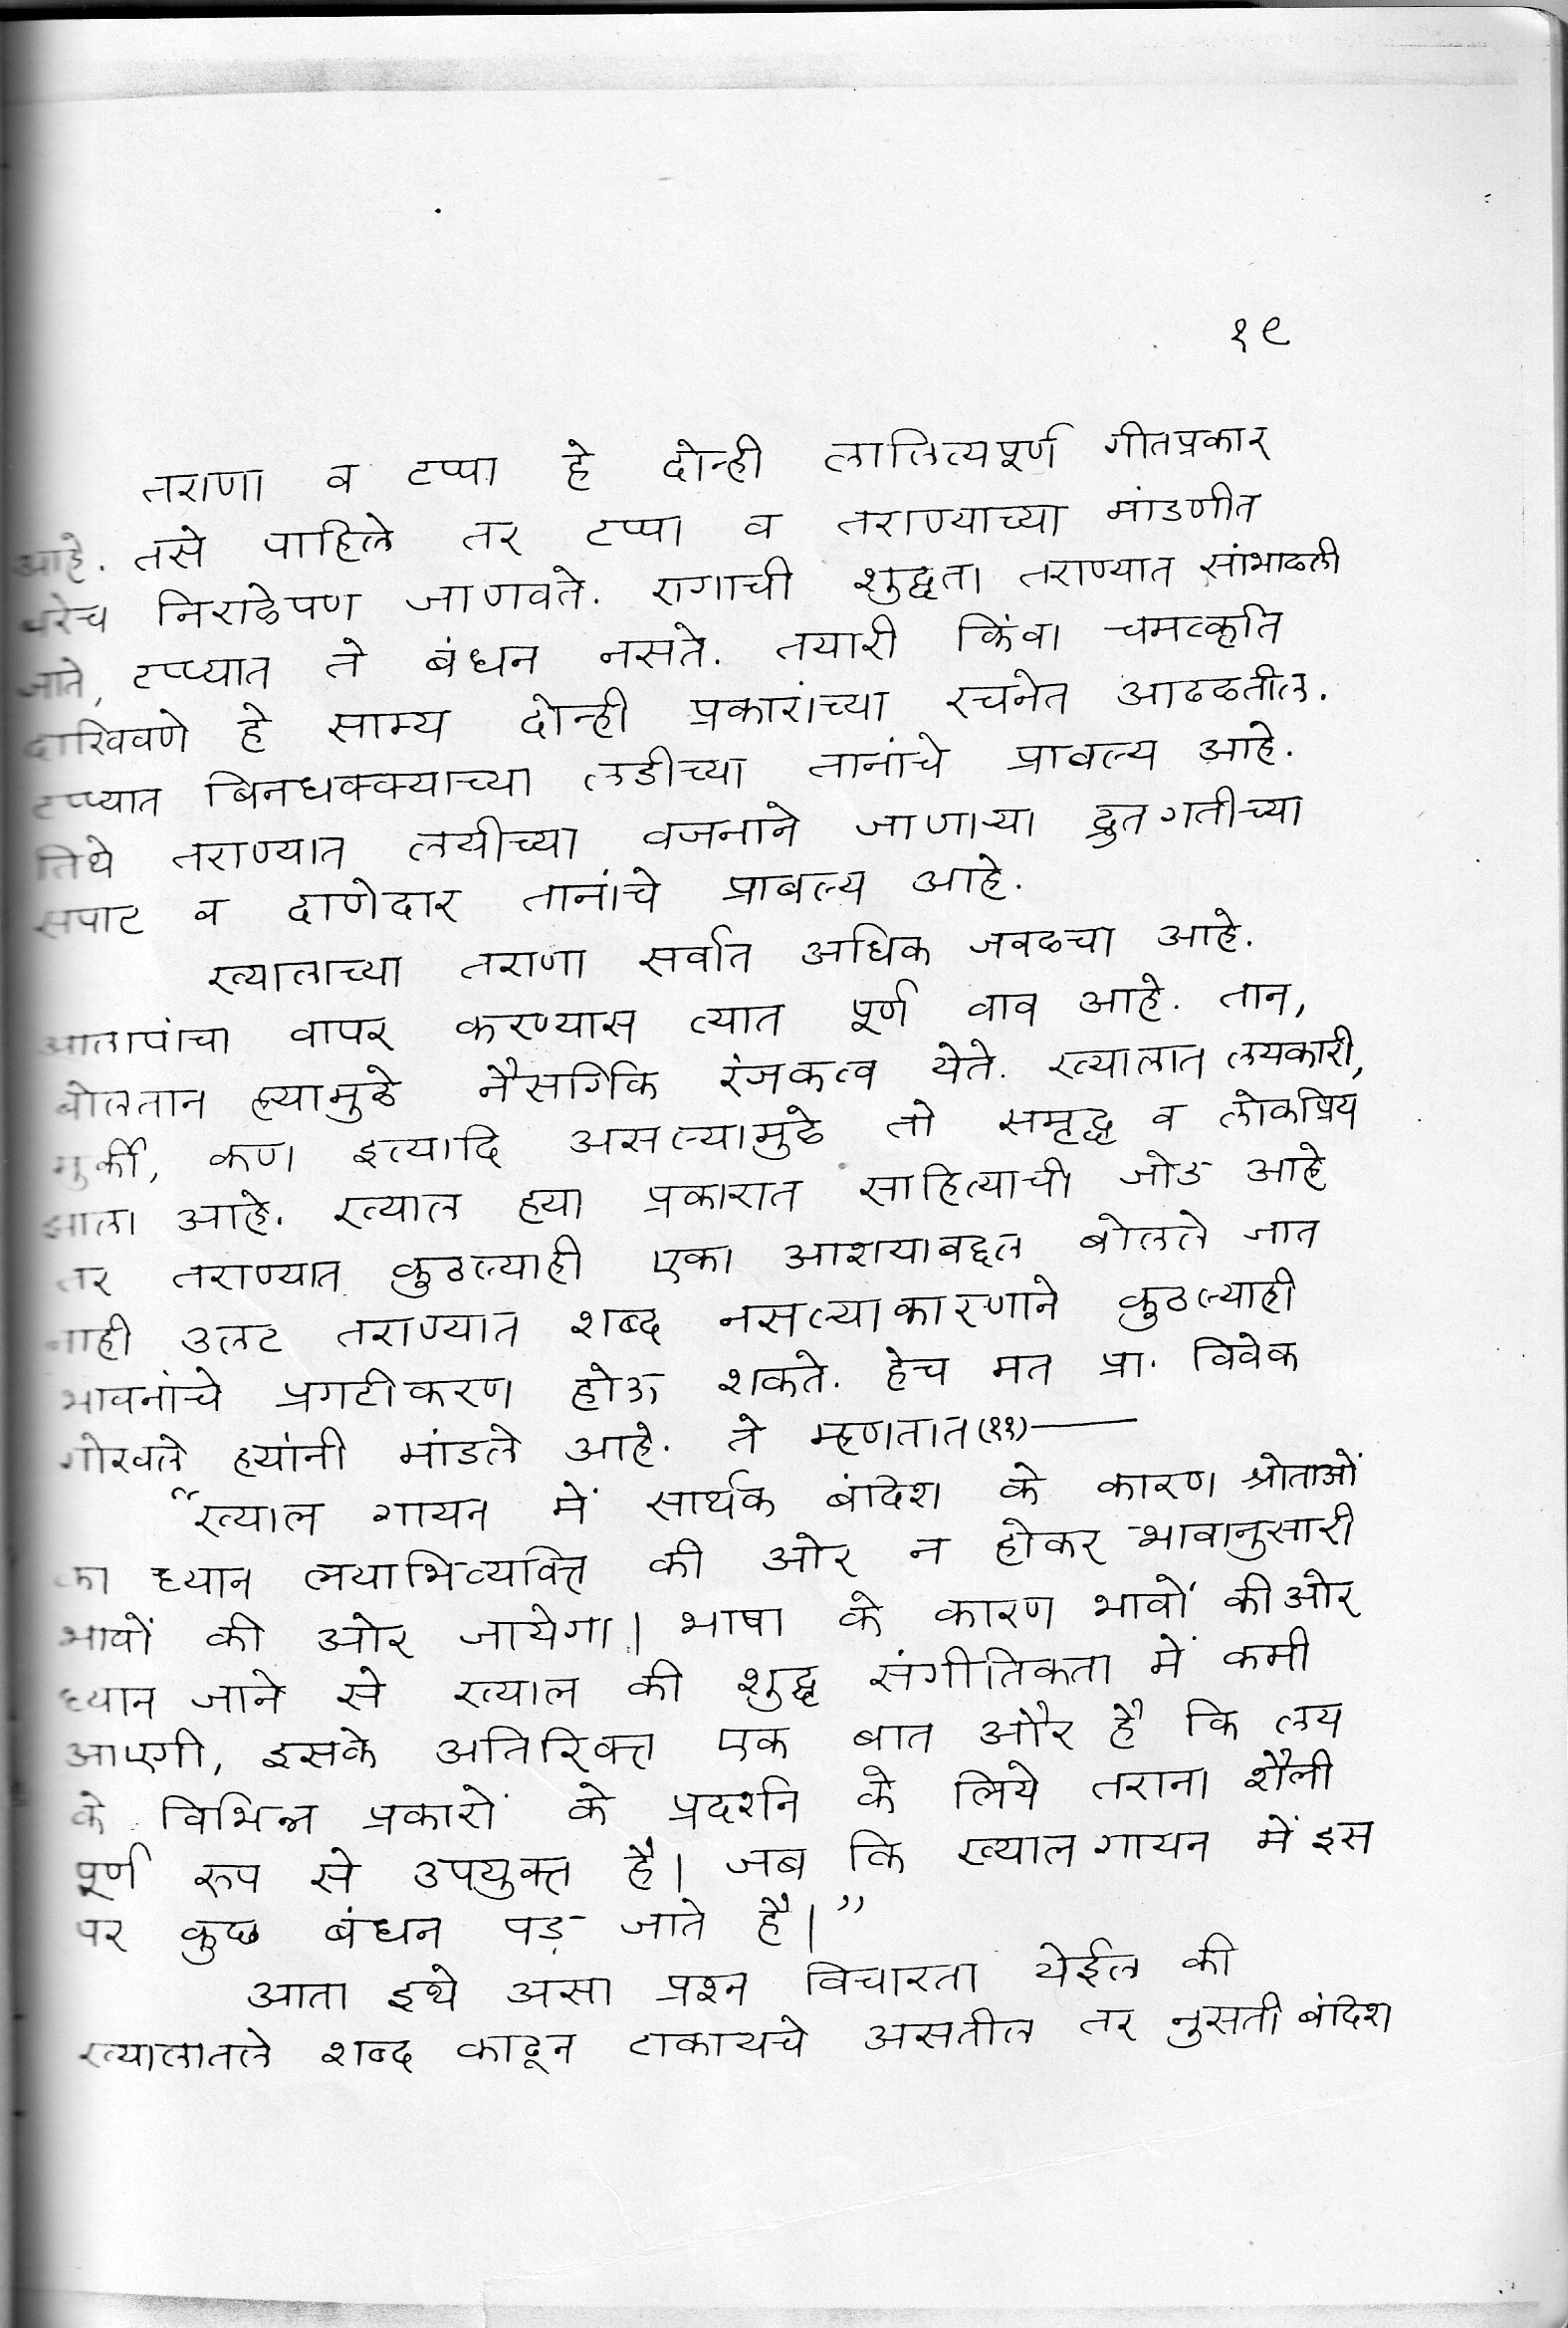 १९
तराणा व टप्पा हे दोन्ही लालित्यपूर्ण गीतप्रकार
आहे. तसे पाहिले तर टप्पा व तराण्याच्या मांडणीत
बरेच निराळेपण जाणवते. रागाची शुद्धता तराण्यात सांभाळली
जाते, टप्प्यात ते बंधन नसते. तयारी किंवा चमत्कृति
दाखिवणे हे साम्य दोन्ही प्रकारांच्या रचनेत आढळतील.
टप्प्यात बिनधक्क्याच्या लडीच्या तानांचे प्राबल्य आहे.
तिथे तराण्यात लयीच्या वजनाने जाणाऱ्या द्रुत गतीच्या
सपाट व दाणेदार तानांचे प्राबल्य आहे.
ख्यालाच्या तराणा सर्वात अधिक जवळचा आहे.
आलापांचा वापर करण्यास त्यात पूर्ण वाव आहे. तान,
बोलतान ह्यामुळे नैसर्गिक रंजकत्व येते. ख्यालात लयकारी,
मुर्की, कण इत्यादि असल्यामुळे तो समृद्ध व लोकप्रिय
झाला आहे. ख्याल हया प्रकारात साहित्याची जोड आहे
तर तराण्यात कुठल्याही एका आशयाबद्दल बोलले जात
नाही उलट तराण्यात शब्द नसल्याकारणाने कुठल्याही
भावनांचे प्रगटीकरण होऊ शकते. हेच मत प्रा. विवेक
गोखले ह्यांनी मांडले आहे. ते म्हणतात (११) —
"ख्याल गायन में सार्थक बंदिश के कारण श्रोताओं
का ध्यान लयाभिव्यक्ति की ओर न होकर भावानुसारी
भावों की ओर जायेगा। भाषा के कारण भावों की ओर
ध्यान जाने से ख्याल की शुद्ध संगीतिकता में कमी
आएगी, इसके अतिरिक्त एक बात और है कि लय
के विभिन्न प्रकारों के प्रदर्शन के लिये तराना शैली
पूर्ण रुप से उपयुक्त है। जब कि ख्याल गायन में इस
पर कुछ बंधन पड़ जाते है।"
आता इथे असा प्रश्न विचारता येईल की
ख्यालातले शब्द काढून टाकायचे असतील तर नुसती बंदिश